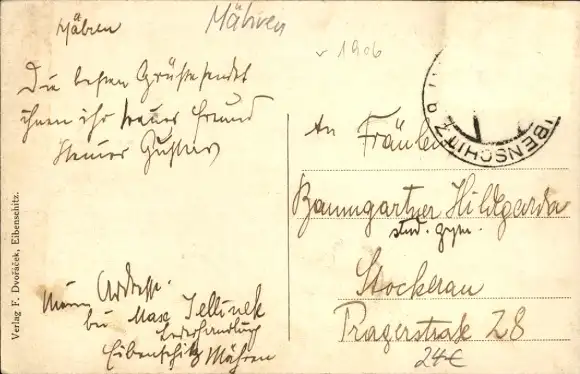 Mähren
Mähren
v 1906
Die besten Grüße sendet
ihnen ihr treuer Freund
Steuer Gustav
Meine Addresse.
bei Max Jellinek
Lederhandlung
Eibenschitz Mähren
An Fräulein
Baumgartner Hildgarda
stud. gym.
Stockerau
Pragerstraße 28
24€
IBENSCHITZ
Verlag F. Dvořáček, Eibenschitz.